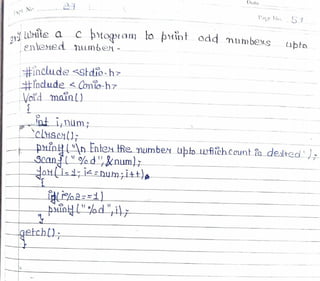 Page No. 51
Q Write a C program to print odd numbers upto
entered number -
#include <stdio.h>
#include <conio.h>
Void main()
{
int i,num;
clrscr();
printf("\n Enter the number upto which count is desired");
scanf("%d",&num);
for(i=1; i<=num;i++)
{
if(i%2==1)
printf("%d",i);
}
getch();
}